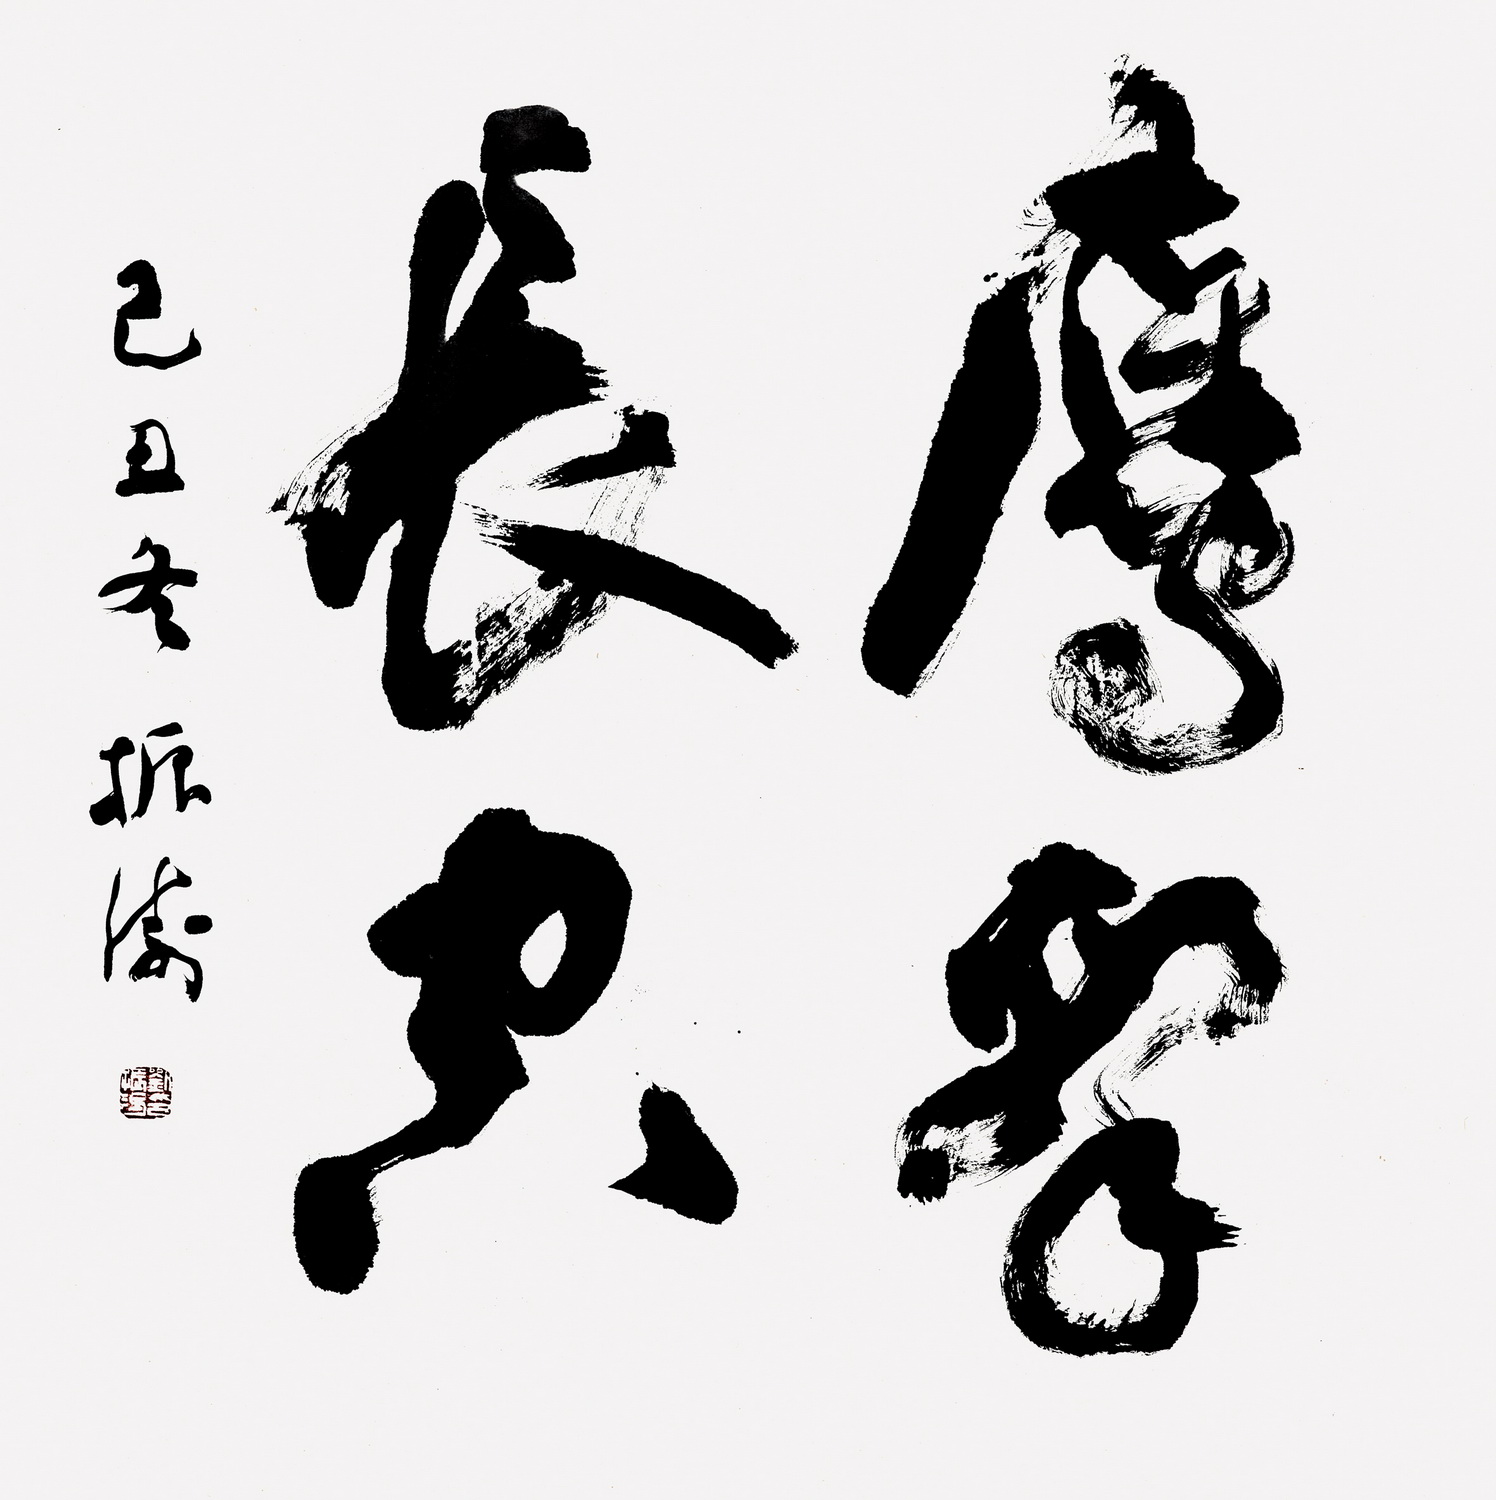 鹰击
长空
己丑冬 振涛